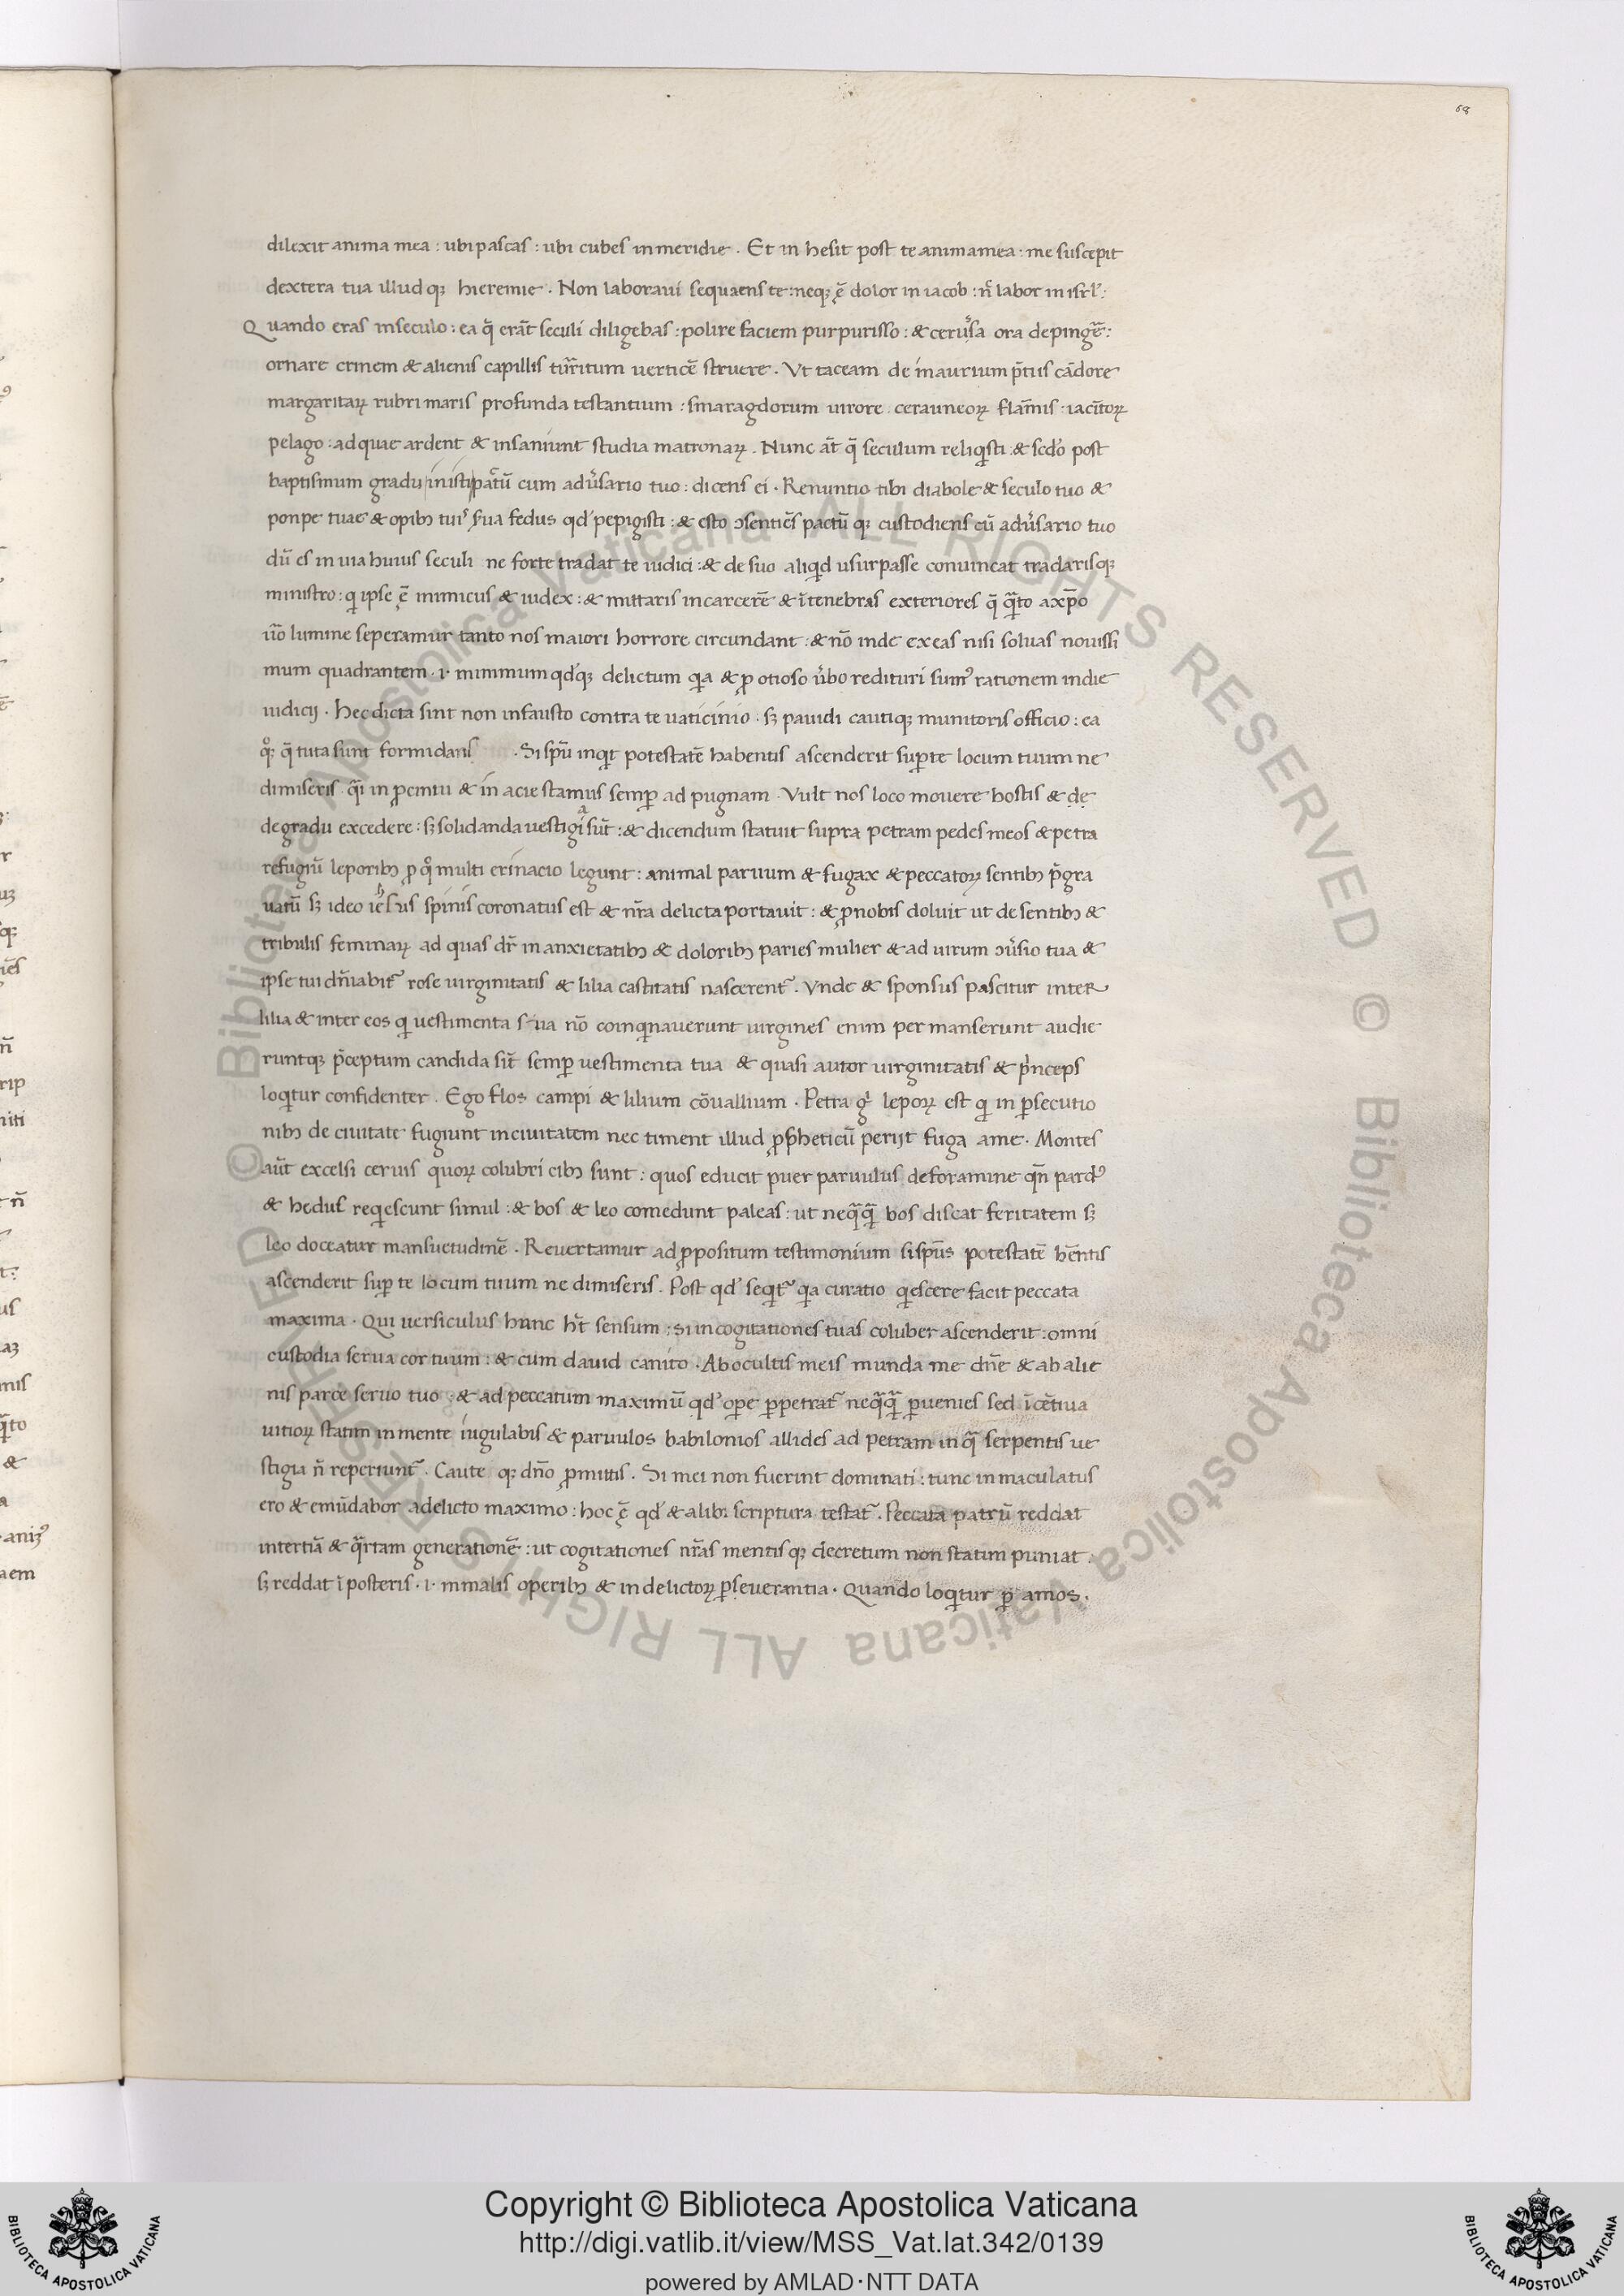 68
dilexit anima mea : ubi pascas : ubi cubes in meridie . Et in hesit post te anima mea : me suscepit
dextera tua illud qꝫ hieremie . Non laboravi sequaens te : neqꝫ ē dolor in iacob : n̄ labor in isrl̓ :
Quando eras in seculo : ea q̄ erāt seculi diligebas : polire faciem purpurisso : & cerus̓a ora depingē :
ornare crinem & alienis capillis tur̄itum verticē struere . Ut taceam de inaurium p̄tiis cādore
margaritaꝝ rubri maris profunda testantium : smaragdorum uirore cerauneoꝝ flām̄is : iacītoꝝ
pelago : ad quae ardent & insaniunt studia matronaꝝ . Nunc āt q̄ seculum reliqisti : & scd̓o post
baptismum gradu inisti pātū cum adu̓sario tuo : dicens ei . Renuntio tibi diabole & seculo tuo &
ponpe tuae & opibꝫ tuis sua fedus qd̓ pepigisti : & esto ↄsentiēs pactū qꝫ custodiens cū adu̓sario tuo
dū es in uia huius seculi ne forte tradat te iudici : & de suo aliqid usurpasse convincat tradarisqꝫ
ministro : qi ipse ē inimicus & iudex : & mittaris in carcerē & ī tenebras exteriores q̄ qāto a xp̄o
ūo lumine seperamur tanto nos maiori horrore circundant : & nō inde exeas nisi solvas novissi
mum quadrantem . i . minimum qd̓qꝫ delictum qia & ꝓ otioso u̓bo redituri sumꝰ rationem in die
iudicij . Hec dicta sint non infausto contra te uaticinio : sꝫ pavidi cautiqꝫ munitoris officio : ea
qoqꝫ q̄ tuta sunt formidans . Si spū inqit potestatē habentis ascenderit suꝑ te locum tuum ne
dimiseris . qāi in ꝓcintu & in acie stamus semꝑ ad pugnam . Vult nos loco movere hostis & de
de gradu excedere : sꝫ solidanda vestigia sūt : & dicendum statuit supra petram pedes meos & petra
refugiū leporibꝫ ꝓ qo multi erinacio legunt : animal parvum & fugax & peccatoꝝ sentibꝫ p̄gra
vatū sꝫ ideo iehsus spinis coronatus est & nr̄a delicta portavit : & ꝓ nobis doluit ut de sentibꝫ &
tribulis feminaꝝ ad quas dr̄ in anxietatibꝫ & doloribꝫ paries mulier & ad virum ↄu̓sio tua &
ipse tui dn̄abit̄ rose virginitatis & lilia castitatis nascerent̄ . Unde & sponsus pascitur inter
lilia & inter eos qi vestimenta sua nō coinqinaverunt virgines enim permanserunt audie
runtqꝫ p̄ceptum candida sīt semꝑ vestimenta tua & quasi autor virginitatis & pi̓nceps
loqitur confidenter . Ego flos campi & lilium cōvallium . Petra gi̓ lepoꝝ est qi in ꝑsecutio
nibꝫ de civitate fugiunt in civitatem nec timent illud ꝓpheticū perijt fuga a me . Montes
aūt excelsi cervis quoꝝ colubri cibꝫ sunt : quos educit puer parvulus de foramine qn̄ pardꝰ
& hedus reqiescunt simul : & bos & leo comedunt paleas : ut neqāqā bos discat feritatem sꝫ
leo doceatur mansuetudinē . Revertamur ad ꝓpositum testimonium si spūs potestatē hēntis
ascenderit suꝑ te locum tuum ne dimiseris . Post qd̓ seqit̄ qia curatio qiescere facit peccata
maxima . Qui versiculus hunc h̄t sensum : si in cogitationes tuas coluber ascenderit : omni
custodia serva cor tuum : & cum david canito . Ab ocultis meis munda me dn̄e & ab alie
nis parce servo tuo : & ad peccatum maximū qd̓ oꝑe ꝑpetrat̄ neqāqā ꝑvenies sed īcētiva
vitioꝝ statim in mente iugulabis & parvulos babilonios allides ad petram in qā serpentis ve
stigia n̄ reperiunt̄ . Caute qꝫ dn̄o ꝓmittis . Si mei non fuerint dominati : tunc inmaculatus
ero & emūdabor a delicto maximo : hoc ē qd̓ & alibi scriptura testat̄ . Peccata patrū reddat
in tertiā & qārtam generationē : ut cogitationes nr̄as mentis qꝫ decretum non statim puniat
sꝫ reddat ī posteris . i . in malis operibꝫ & in delictoꝝ ꝑseverantia . Quando loqitur ꝑ amos .
Copyright © Biblioteca Apostolica Vaticana
http://digi.vatlib.it/view/MSS_Vat.lat.342/0139
powered by AMLAD·NTT DATA
BIBLIOTECA APOSTOLICA VATICANA
BIBLIOTECA APOSTOLICA VATICANA